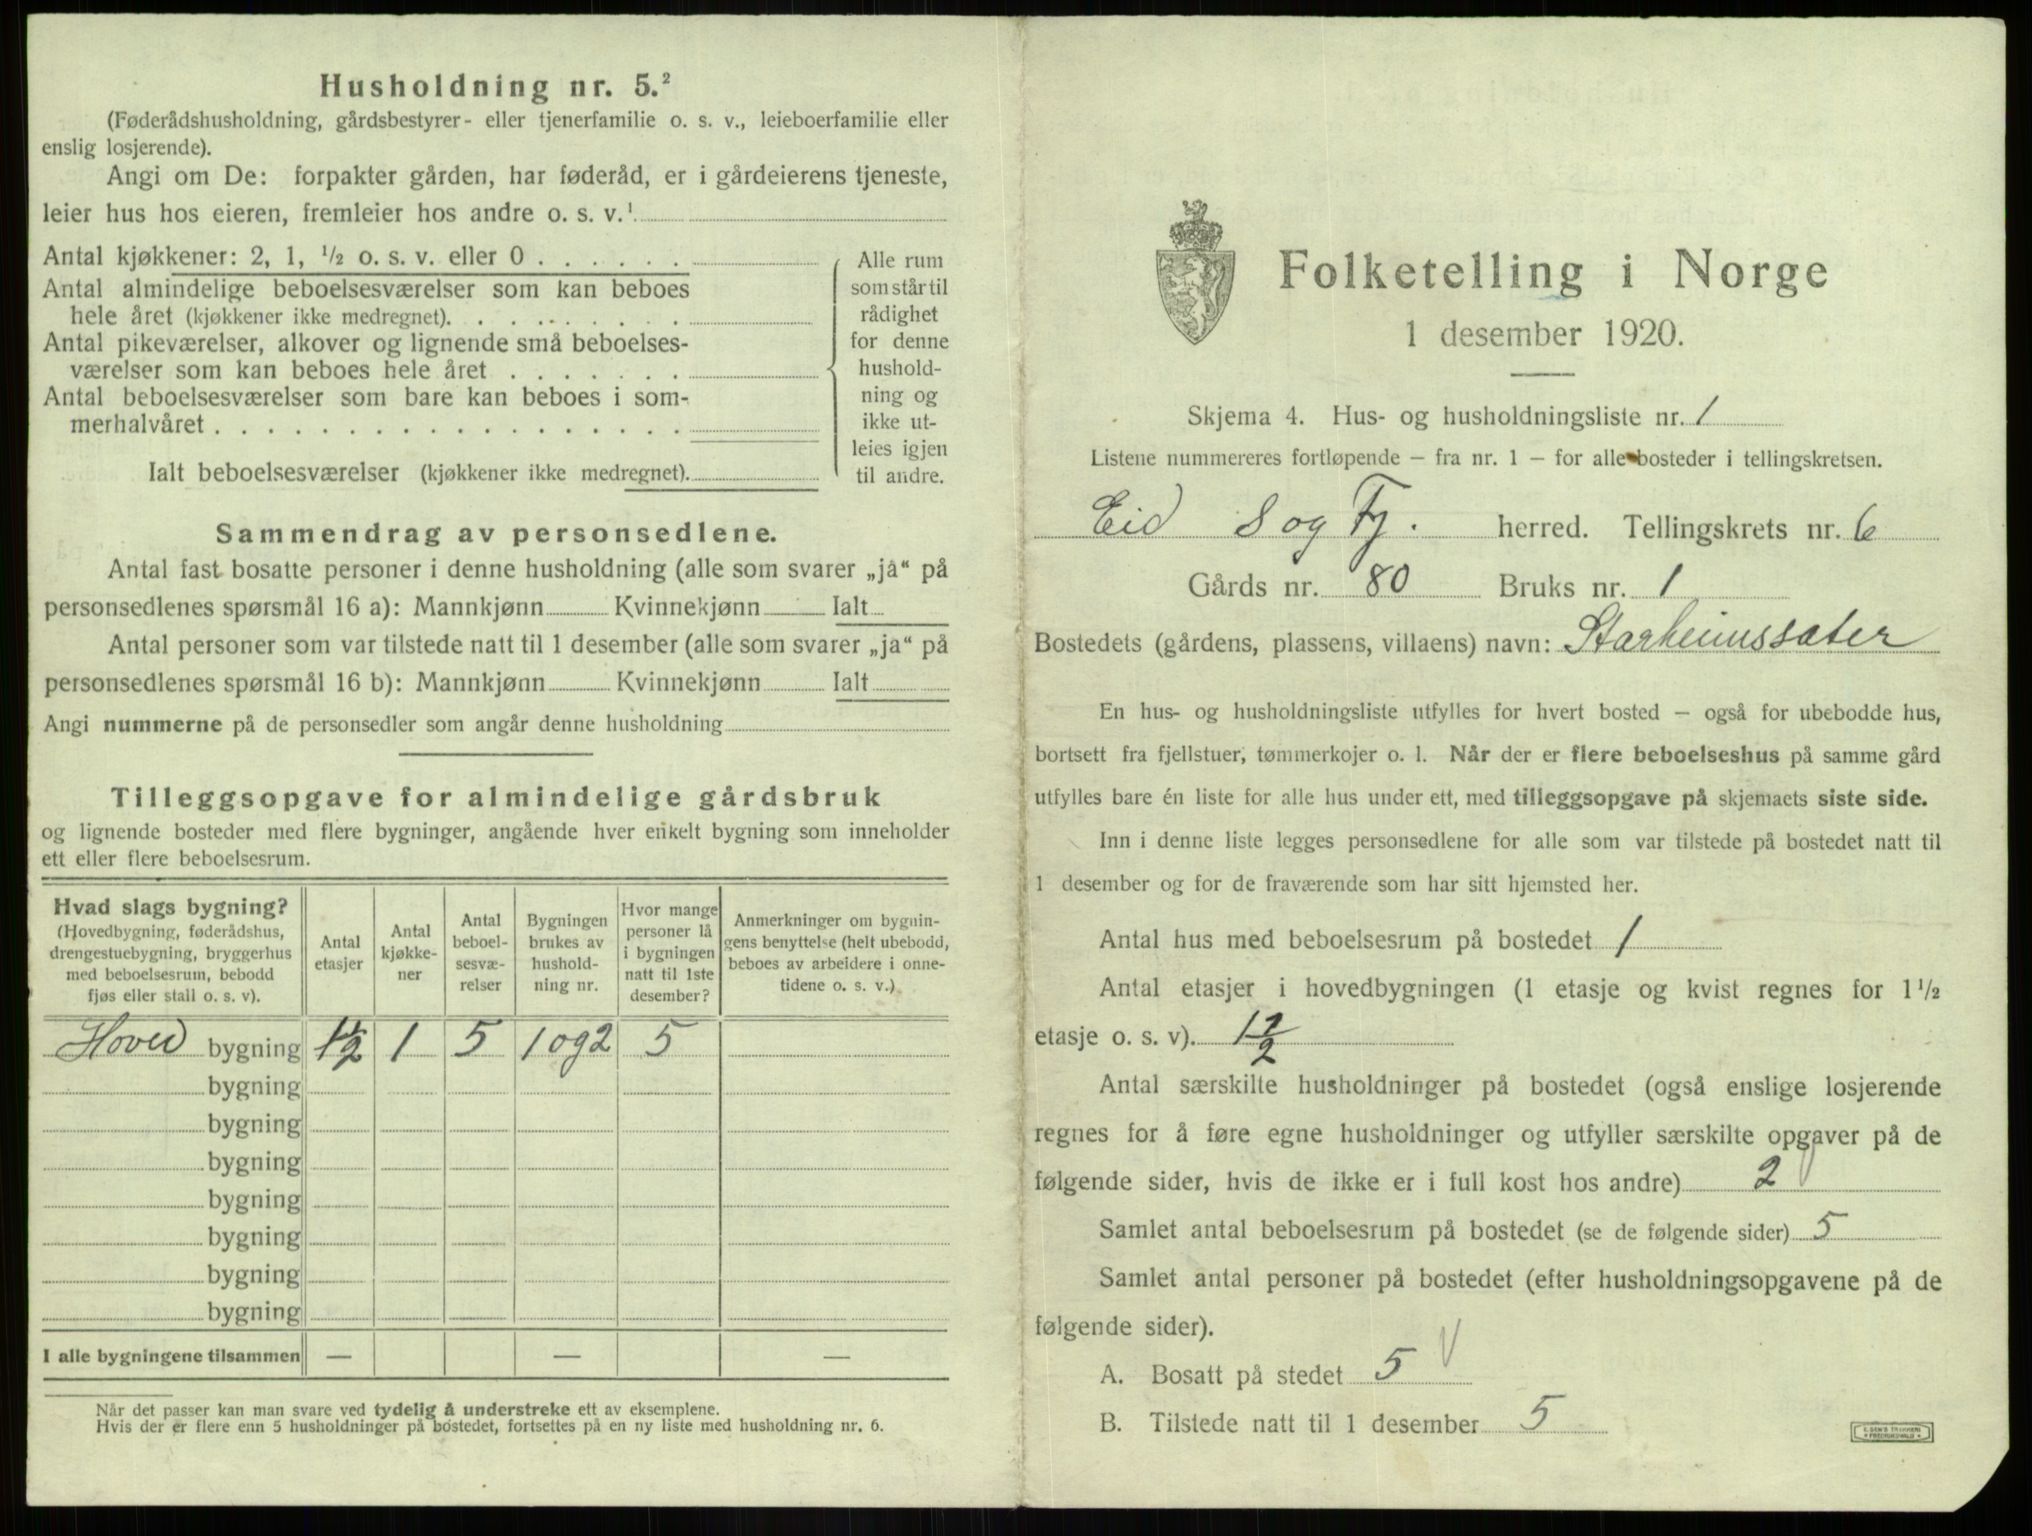 Husholdning nr. 5.²
(Føderådshusholdning, gårdsbestyrer- eller tjenerfamilie o. s. v., leieboerfamilie eller
enslig losjerende).
Angi om De: forpakter gården, har føderåd, er i gårdeierens tjeneste,
leier hus hos eieren, fremleier hos andre o. s. v.¹
Antal kjøkkener: 2, 1, ½ o. s. v. eller 0
Antal almindelige beboelsesværelser som kan beboes
hele året (kjøkkener ikke medregnet).
Antal pikeværelser, alkover og lignende små beboelses-
værelser som kan beboes hele året
Antal beboelsesværelser som bare kan beboes i som-
merhalvåret
Ialt beboelsesværelser (kjøkkener ikke medregnet).
Alle rum
som står til
rådighet
for denne
hushold-
ning og
ikke ut-
leies igjen
til andre.
Sammendrag av personsedlene.
Antal fast bosatte personer i denne husholdning (alle som svarer „ja“ på
personsedlenes spørsmål 16 a): Mannkjønn Kvinnekjønn Ialt
Antal personer som var tilstede natt til 1 desember (alle som svarer „ja“ på
personsedlenes spørsmål 16 b): Mannkjønn Kvinnekjønn Ialt
Angi nummerne på de personsedler som angår denne husholdning
Tilleggsopgave for almindelige gårdsbruk
og lignende bosteder med flere bygninger, angående hver enkelt bygning som inneholder
ett eller flere beboelsesrum.
Hvad slags bygning?
(Hovedbygning, føderådshus,
drengestuebygning, bryggerhus
med beboelsesrum, bebodd
fjøs eller stall o. s. v).
Antal
etasjer
Antal
kjøkke-
ner
Antal
beboel-
sesvæ-
relser
Bygningen
brukes av
hushold-
ning nr.
Hvor mange
personer lå
i bygningen
natt til 1ste
desember?
Anmerkninger om bygnin-
gens benyttelse (helt ubebodd,
beboes av arbeidere i onne-
tidene o. s. v.)
Hoved bygning 1½ 1 5 1 og 2 5
bygning
bygning
bygning
bygning
bygning
bygning
bygning
I alle bygningene tilsammen — — —
Når det passer kan man svare ved tydelig å understreke ett av eksemplene.
Hvis der er flere enn 5 husholdninger på bostedet, fortsettes på en ny liste med husholdning nr. 6.
Folketelling i Norge
1 desember 1920.
Skjema 4. Hus- og husholdningsliste nr. 1
Listene nummereres fortløpende – fra nr. 1 – for alle bosteder i tellingskretsen.
Eid S og Fj. herred. Tellingskrets nr. 6
Gårds nr. 80 Bruks nr. 1
Bostedets (gårdens, plassens, villaens) navn: Starheimssæter
En hus- og husholdningsliste utfylles for hvert bosted – også for ubebodde hus,
bortsett fra fjellstuer, tømmerkojer o. l. Når der er flere beboelseshus på samme gård
utfylles bare én liste for alle hus under ett, med tilleggsopgave på skjemaets siste side.
Inn i denne liste legges personsedlene for alle som var tilstede på bostedet natt til
1 desember og for de fraværende som har sitt hjemsted her.
Antal hus med beboelsesrum på bostedet 1
Antal etasjer i hovedbygningen (1 etasje og kvist regnes for 1½
etasje o. s. v). 1½
Antal særskilte husholdninger på bostedet (også enslige losjerende
regnes for å føre egne husholdninger og utfyller særskilte opgaver på de
følgende sider, hvis de ikke er i full kost hos andre) 2
Samlet antal beboelsesrum på bostedet (se de følgende sider) 5
Samlet antal personer på bostedet (efter husholdningsopgavene på de
følgende sider).
A. Bosatt på stedet 5
B. Tilstede natt til 1 desember 5